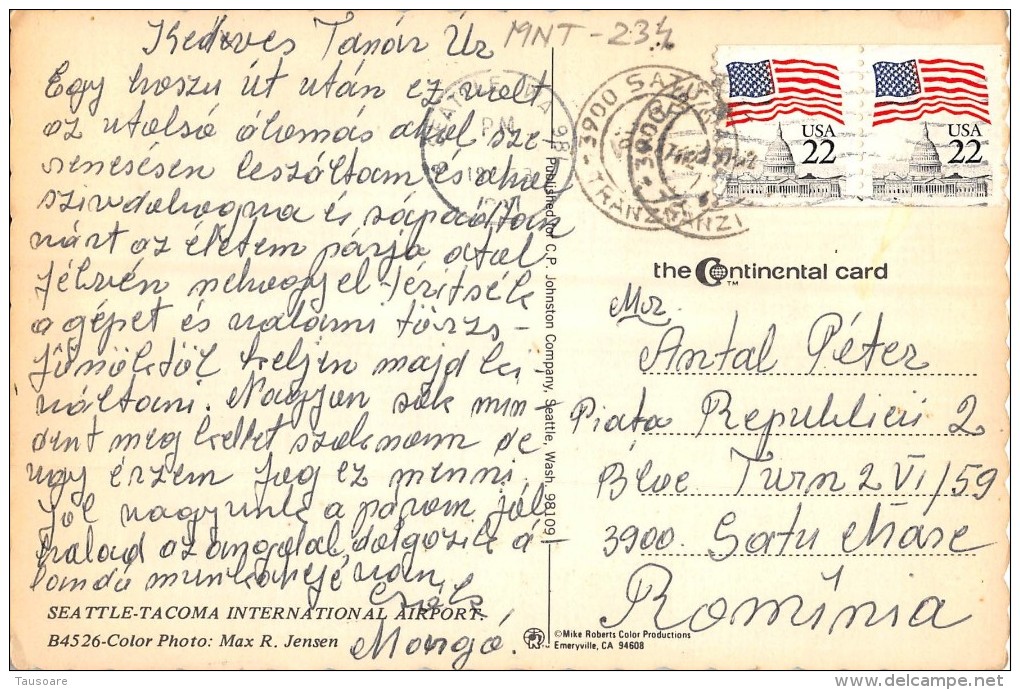 Kedves Tanár Úr
MNT-234
Egy hoszu út után ez volt
az utolsó álomás ahol sze-
rencsésen leszáltam és ahol
szivdobogva és sápadtan
várt az életem párja attol
félvén nehogy el térítsék
a gépet és valami törzs-
főnöktöl keljen majd ki-
váltani. Nagyon sok min-
dent meg kellet szoknom de
ugy érzem fog ez menni,
Jól vagyunk a párom jól
halad az angolal, dolgozik á-
landó munkahejé van,
Csók
Mangó.
SEATTLE-TACOMA INTERNATIONAL AIRPORT.
B4526-Color Photo: Max R. Jensen
SEATTLE WA 981
PM
Published for C.P. Johnston Company, Seattle, Wash. 98109
3900 SA
TRANZ
3900
TRANZI
USA
22
USA
22
the Continental card
TM
Mr.
Antal Péter
Piața Republicii 2
Bloc Turn 2 VI/59
3900. Satu Mare
Románia
©Mike Roberts Color Productions
Emeryville, CA 94608
Tausoare
delcampe.net